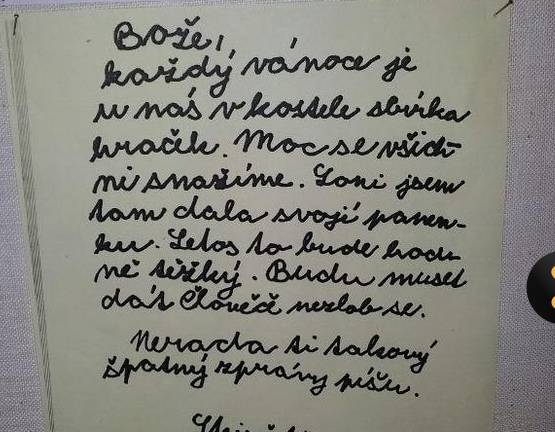 Bože,
každý vánoce je
u nás v kostele sbírka
hraček. Moc se všich-
ni snažíme. Loni jsem
tam dala svojí panen-
ku. Letos to bude hod-
ně těžký. Budu muset
dát Člověče nezlob se.
Nerada ti takový
špatný zprávy píšu.